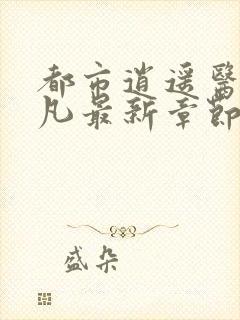 都市逍遥醫
凡最新章節
盛朵